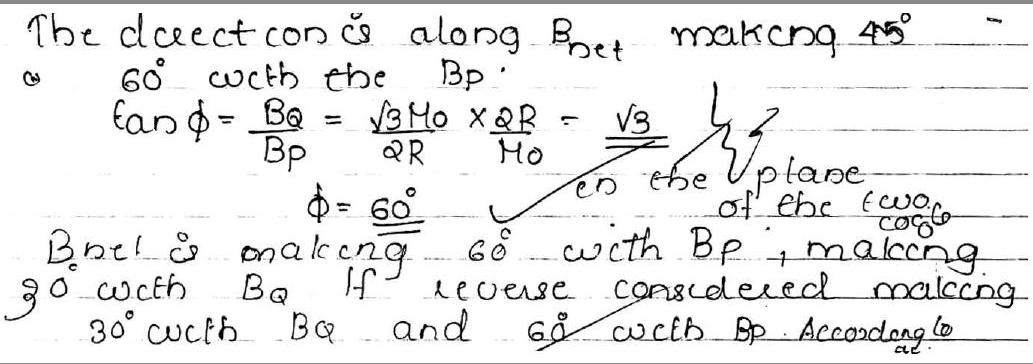 The direction is along Bnet making 45°
60° with the Bp.
tan ϕ = BQ/Bp = √3 μ0/2R × 2R/μ0 = √3
ϕ = 60° in the plane
of the two coils
Bnet is making 60° with Bp, making
30° with BQ If reverse considered making
30° with BQ and 60° with Bp. According to